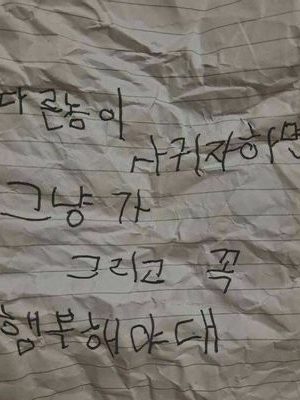 다른놈이
사귀자하면
그냥 가
그리고 꼭
행복해야대